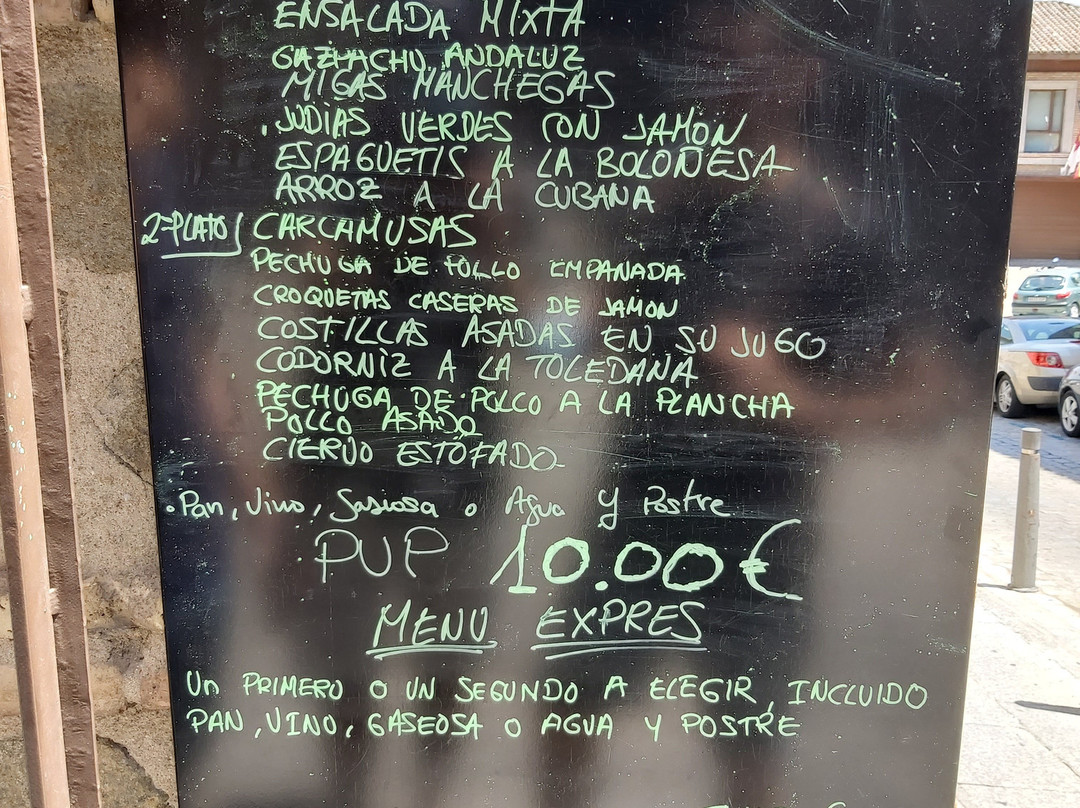 ENSALADA MIXTA
GAZPACHO ANDALUZ
MIGAS MANCHEGAS
JUDIAS VERDES CON JAMON
ESPAGUETIS A LA BOLOÑESA
ARROZ A LA CUBANA
2º PLATO CARCAMUSAS
PECHUGA DE POLLO EMPANADA
CROQUETAS CASERAS DE JAMON
COSTILLAS ASADAS EN SU JUGO
CODORNIZ A LA TOLEDANA
PECHUGA DE POLLO A LA PLANCHA
POLLO ASADO
CIERVO ESTOFADO
Pan, Vino, Gasiosa o Agua y Postre
PVP 10.00€
MENU EXPRES
Un PRIMERO O UN SEGUNDO A ELEGIR, INCLUIDO
PAN, VINO, GASEOSA O AGUA Y POSTRE